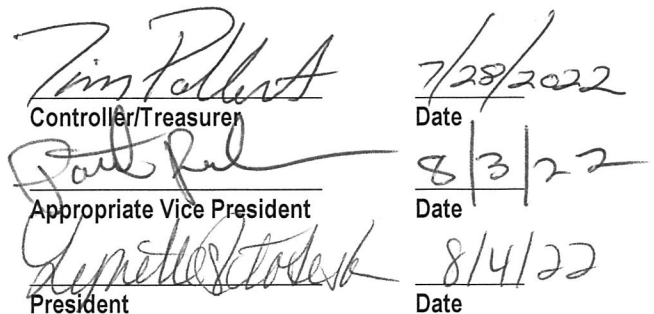 Tim 7/28/2022
Controller/Treasurer Date
8/3/22
Appropriate Vice President Date
Lynette 8/4/22
President Date